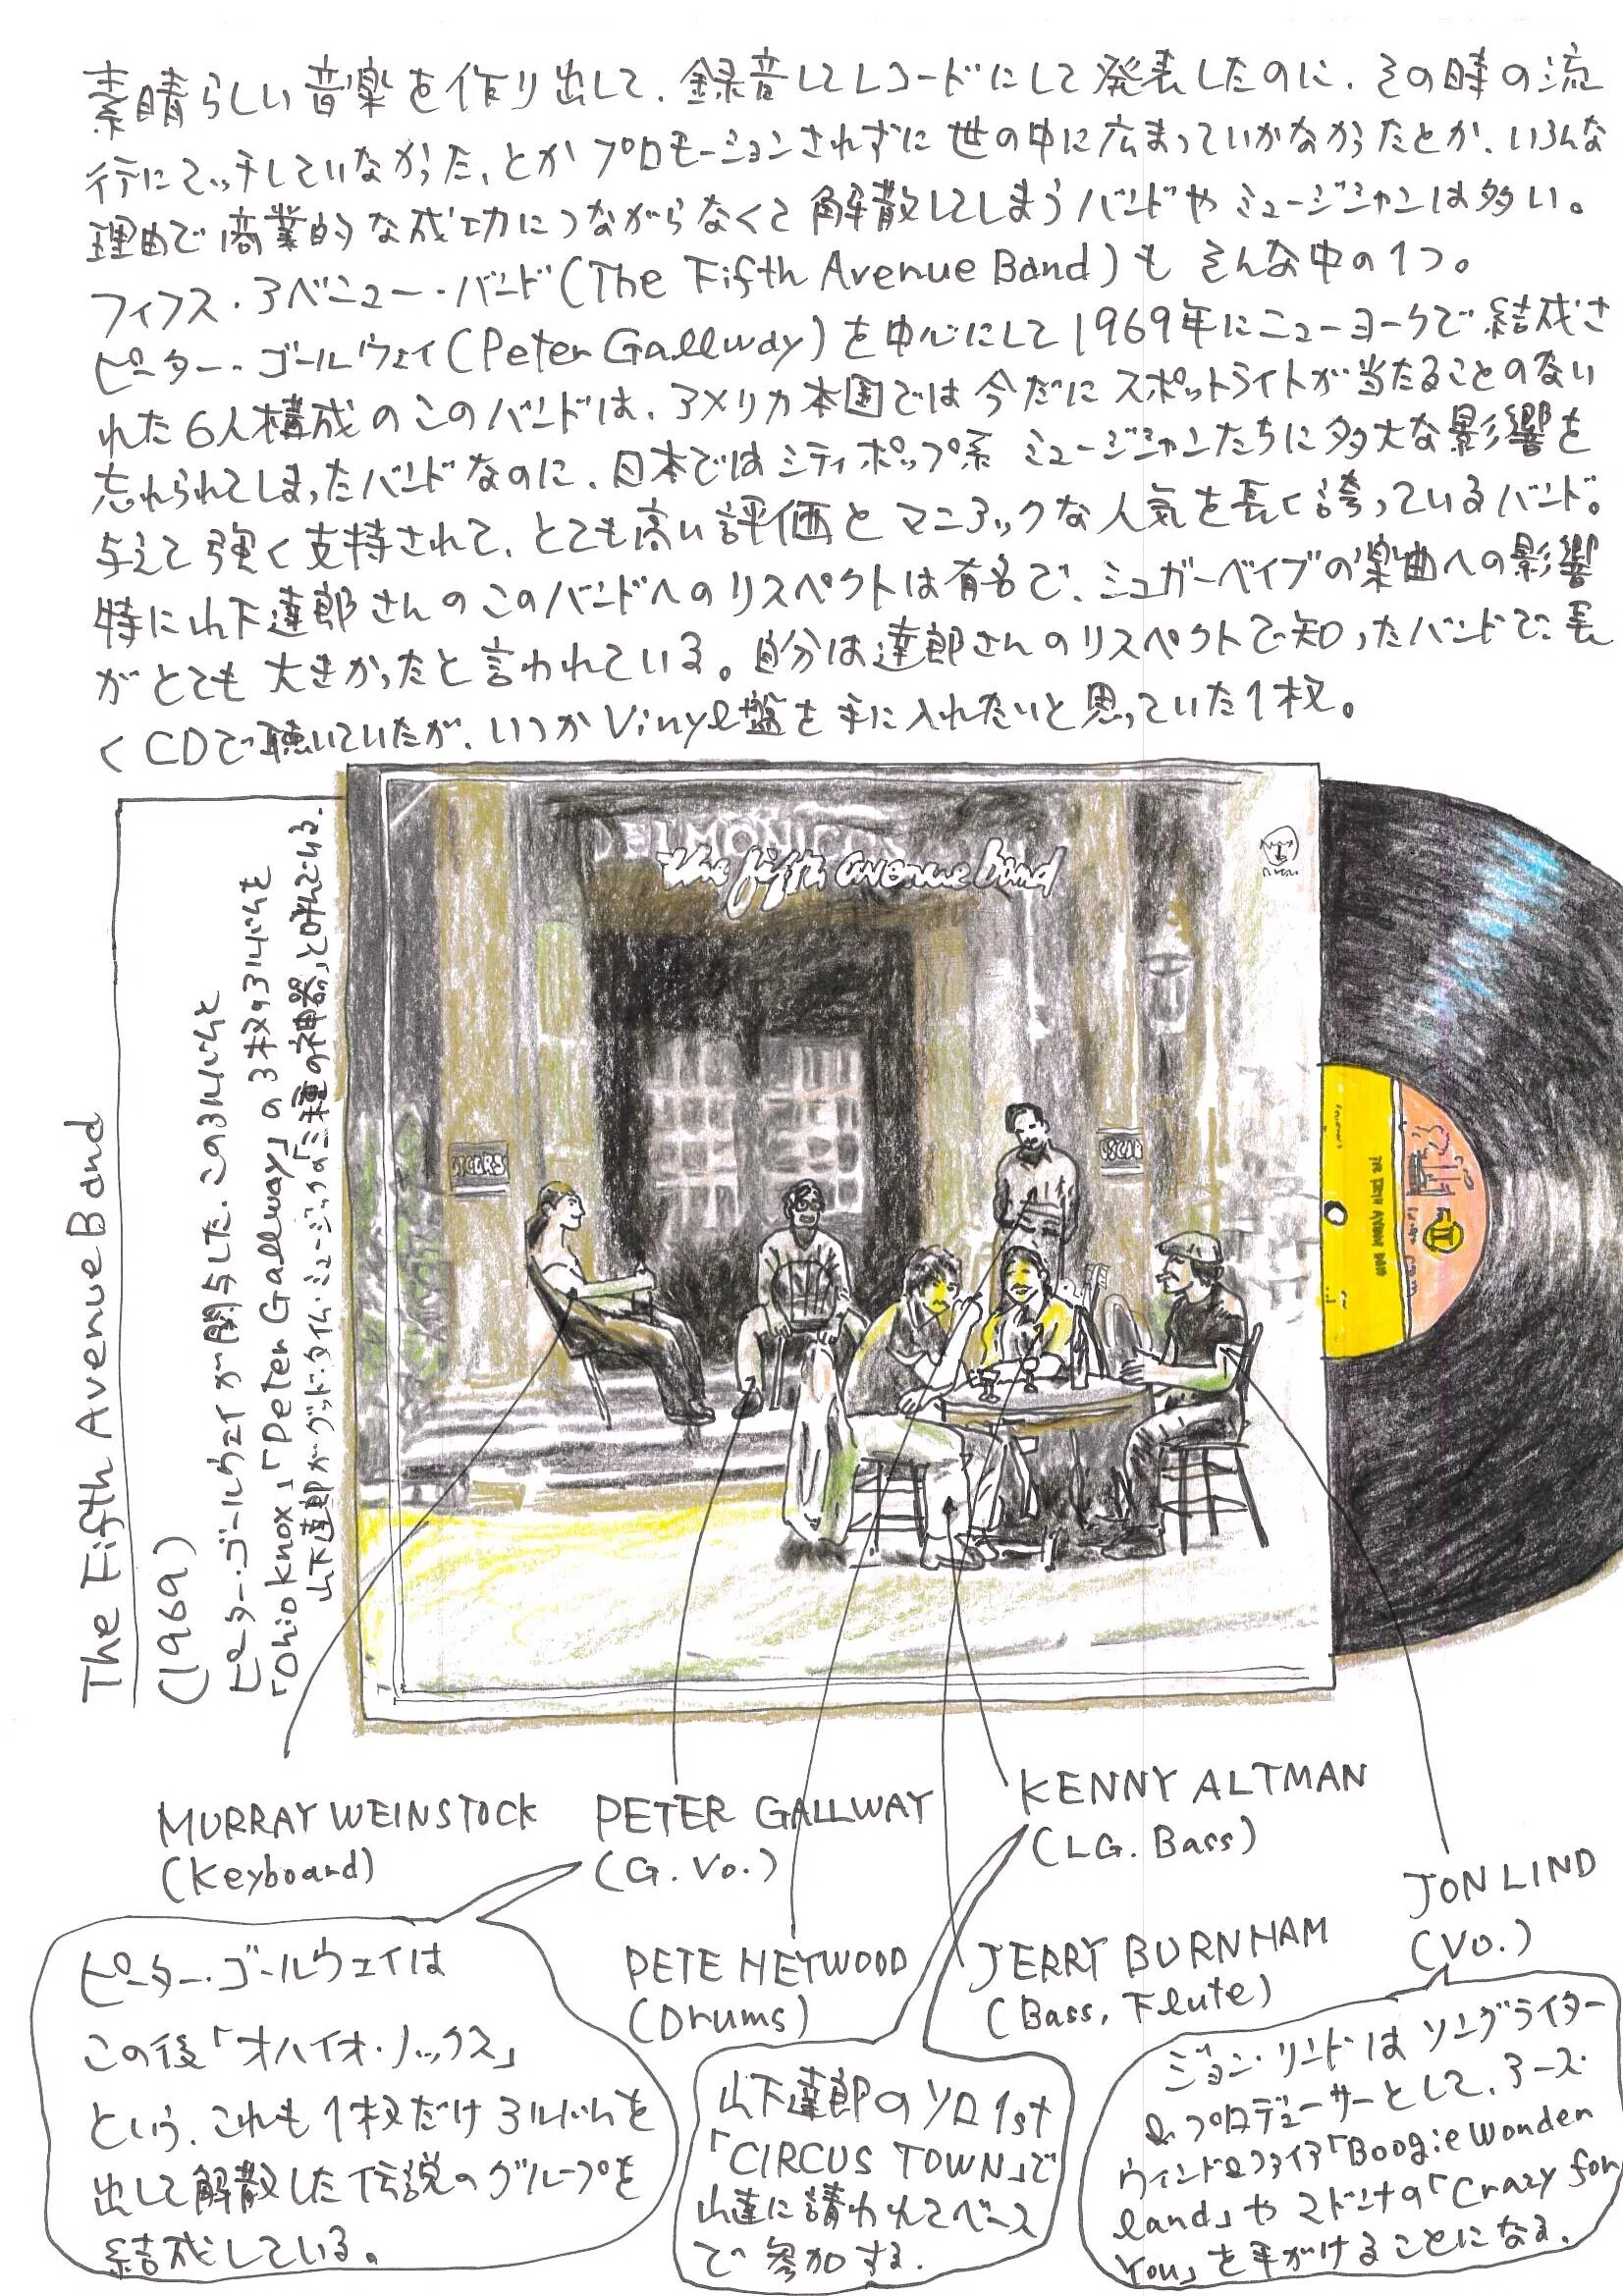 素晴らしい音楽を作り出して、録音してレコードにして発表したのに、その時の流
行にマッチしていなかった、とかプロモーションされずに世の中に広まっていかなかったとか、いろんな
理由で商業的な成功につながらなくて解散してしまうバンドやミュージシャンは多い。
フィフス・アベニュー・バンド(The Fifth Avenue Band)もそんな中の1つ。
ピーター・ゴールウェイ(Peter Gallway)を中心にして1969年にニューヨークで結成さ
れた6人構成のこのバンドは、アメリカ本国では今だにスポットライトが当たることのない
忘れられてしまったバンドなのに、日本ではシティポップ系ミュージシャンたちに多大な影響を
与えて強く支持されて、とても高い評価とマニアックな人気を長く誇っているバンド。
特に山下達郎さんのこのバンドへのリスペクトは有名で、シュガーベイブの楽曲への影響
がとても大きかったと言われている。自分は達郎さんのリスペクトで知ったバンドで、長
くCDで聴いていたが、いつかVinyl盤を手に入れたいと思っていた1枚。
The Fifth Avenue Band
(1969)
ピーター・ゴールウェイが関与した、このアルバムと
「Ohio Knox」「Peter Gallway」の3枚のアルバムを
山下達郎がグッド・タイム・ミュージックの「三種の神器」と呼んでいる。
DELMONICOS
the fifth avenue band
THE FIFTH AVENUE BAND
MURRAY WEINSTOCK
(Keyboard)
PETER GALLWAY
(G. Vo.)
KENNY ALTMAN
(LG. Bass)
JON LIND
(Vo.)
PETE HEYWOOD
(Drums)
JERRY BURNHAM
(Bass, Flute)
ピーター・ゴールウェイは
この後「オハイオ・ノックス」
という、これも1枚だけアルバムを
出して解散した伝説のグループを
結成している。
山下達郎のソロ1st
「CIRCUS TOWN」で
山達に請われてベース
で参加する。
ジョン・リンドはソングライター
&プロデューサーとして、アース・
ウィンド&ファイア「Boogie Wonder
land」やマドンナの「Crazy for
You」を手がけることになる。